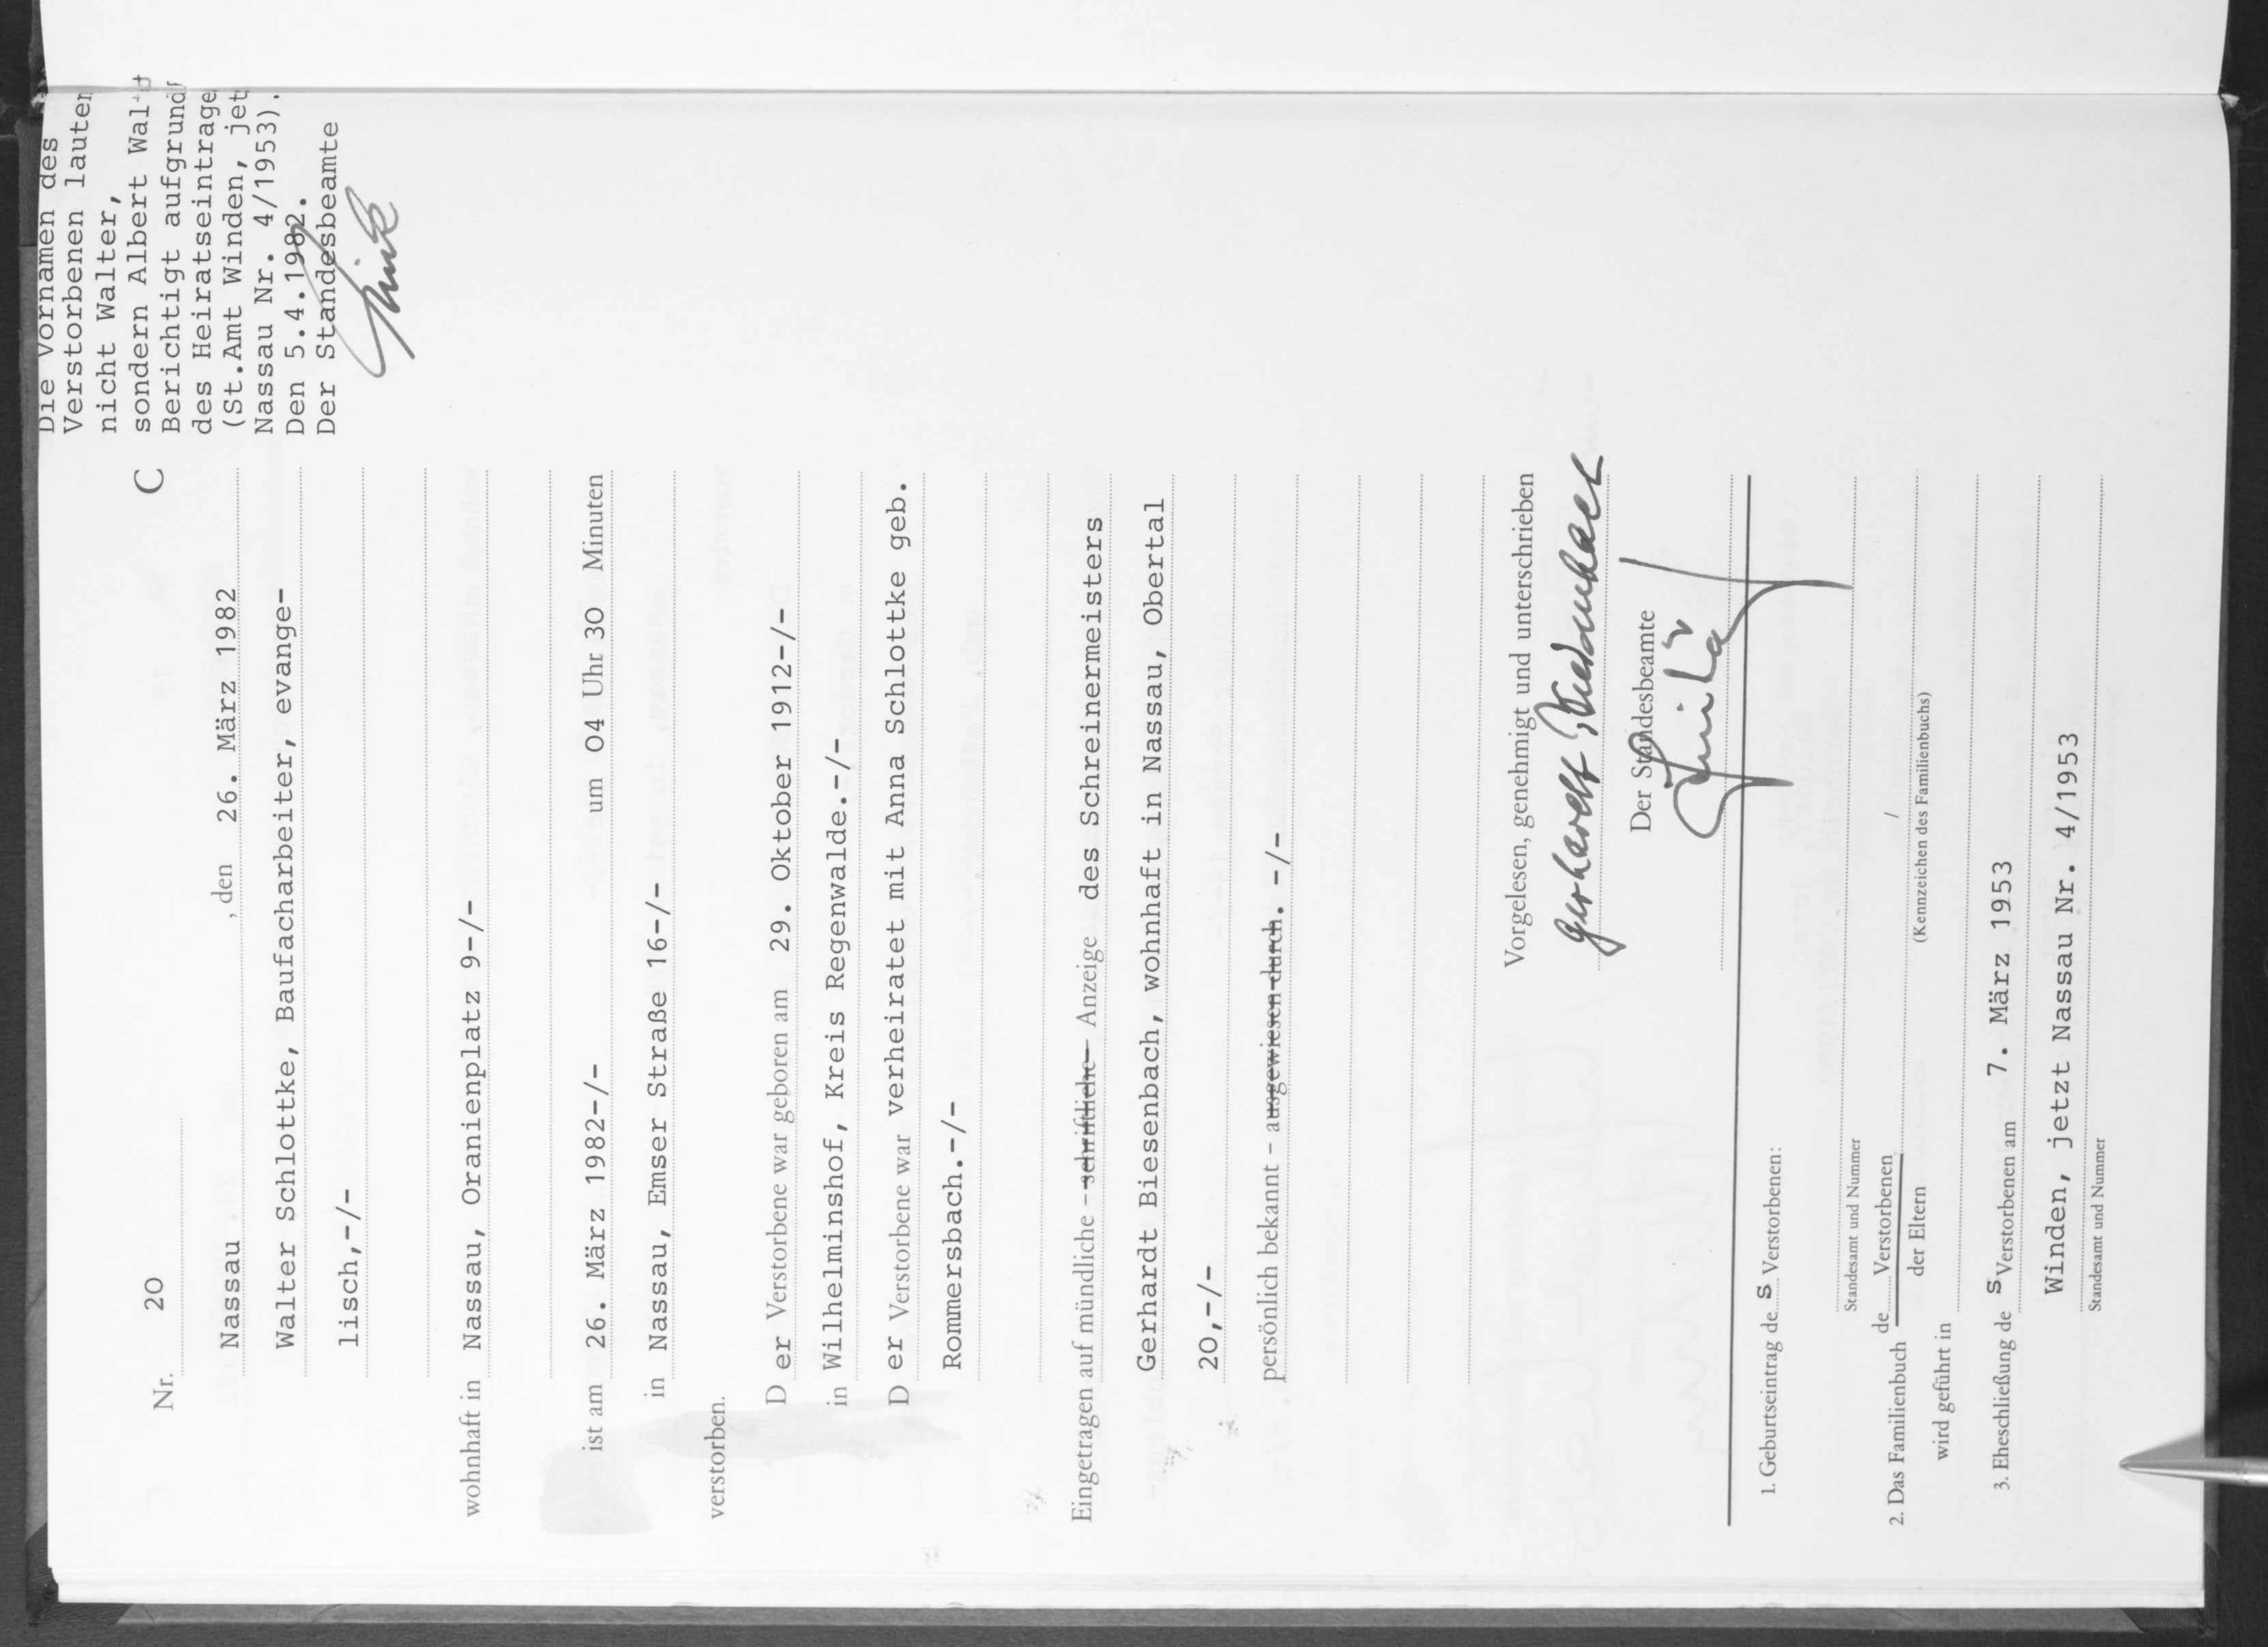 Nr. 20 C
Nassau , den 26. März 1982
Walter Schlottke, Baufacharbeiter, evange-
lisch,-/-
wohnhaft in Nassau, Oranienplatz 9-/-
ist am 26. März 1982-/- um 04 Uhr 30 Minuten
in Nassau, Emser Straße 16-/-
verstorben.
D er Verstorbene war geboren am 29. Oktober 1912-/-
in Wilhelminshof, Kreis Regenwalde.-/-
D er Verstorbene war verheiratet mit Anna Schlottke geb.
Rommersbach.-/-
Eingetragen auf mündliche - schriftliche - Anzeige des Schreinermeisters
Gerhardt Biesenbach, wohnhaft in Nassau, Obertal
20,-/-
persönlich bekannt - ausgewiesen durch. -/-
Vorgelesen, genehmigt und unterschrieben
Der Standesbeamte
1. Geburtseintrag de s Verstorbenen:
Standesamt und Nummer
2. Das Familienbuch de Verstorbenen /
der Eltern (Kennzeichen des Familienbuchs)
wird geführt in
3. Eheschließung de s Verstorbenen am 7. März 1953
Winden, jetzt Nassau Nr. 4/1953
Standesamt und Nummer
Die Vornamen des
Verstorbenen lauten
nicht Walter,
sondern Albert Walt
Berichtigt aufgrund
des Heiratseintrage
(St.Amt Winden, jet
Nassau Nr. 4/1953).
Den 5.4.1982.
Der Standesbeamte